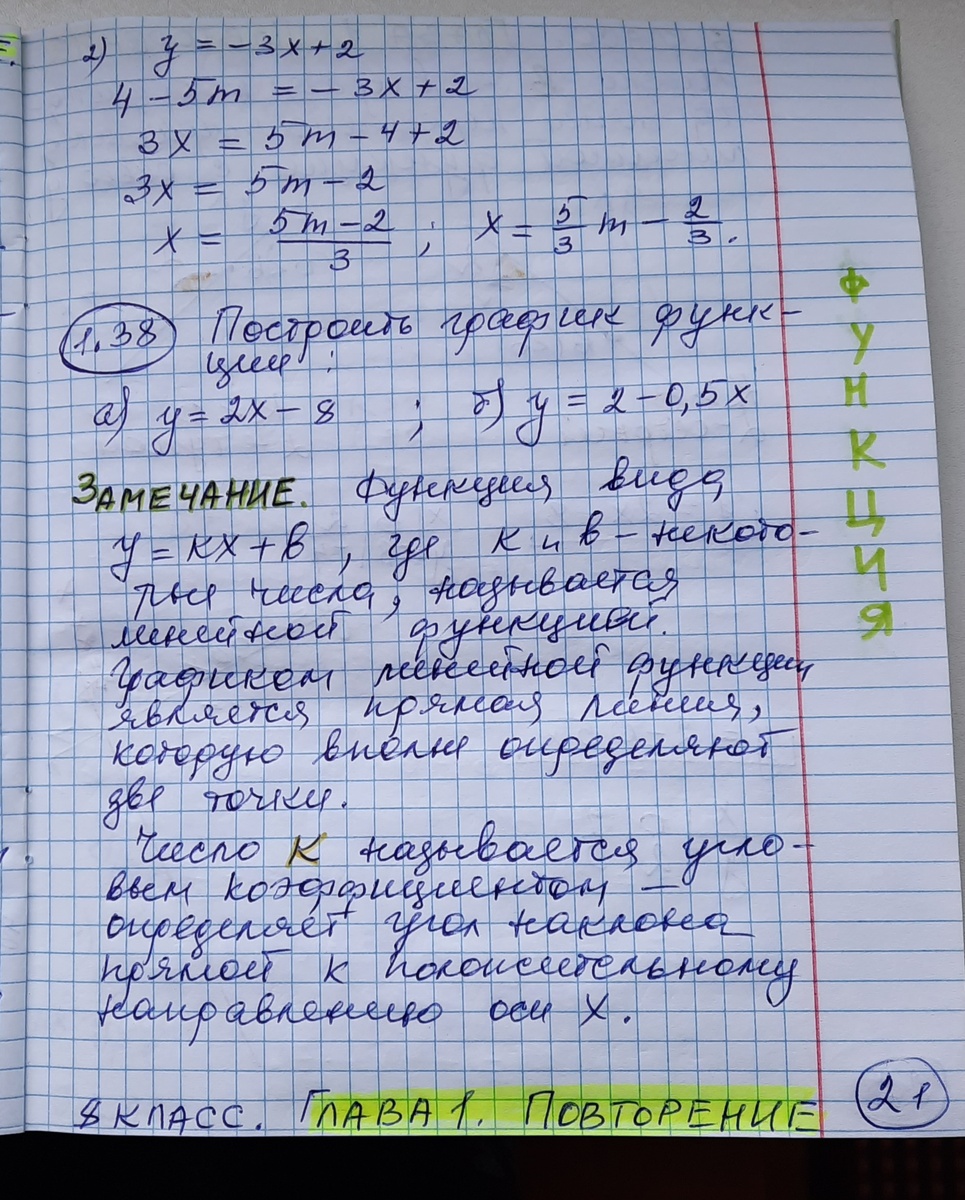 2) y = -3x + 2
4 - 5m = -3x + 2
3x = 5m - 4 + 2
3x = 5m - 2
x = (5m - 2)/3 ; x = 5/3 m - 2/3.
1.38 Построить график функ-
ции:
а) y = 2x - 8 ; б) y = 2 - 0,5x
ЗАМЕЧАНИЕ. Функция вида
y = kx + в, где к и в - некото-
рые числа, называется
линейной функцией.
Графиком линейной функции
является прямая линия,
которую вполне определяют
две точки.
Число К называется угло-
вым коэффициентом —
определяет угол наклона
прямой к положительному
направлению оси X.
ФУНКЦИЯ
8 КЛАСС. ГЛАВА 1. ПОВТОРЕНИЕ
21